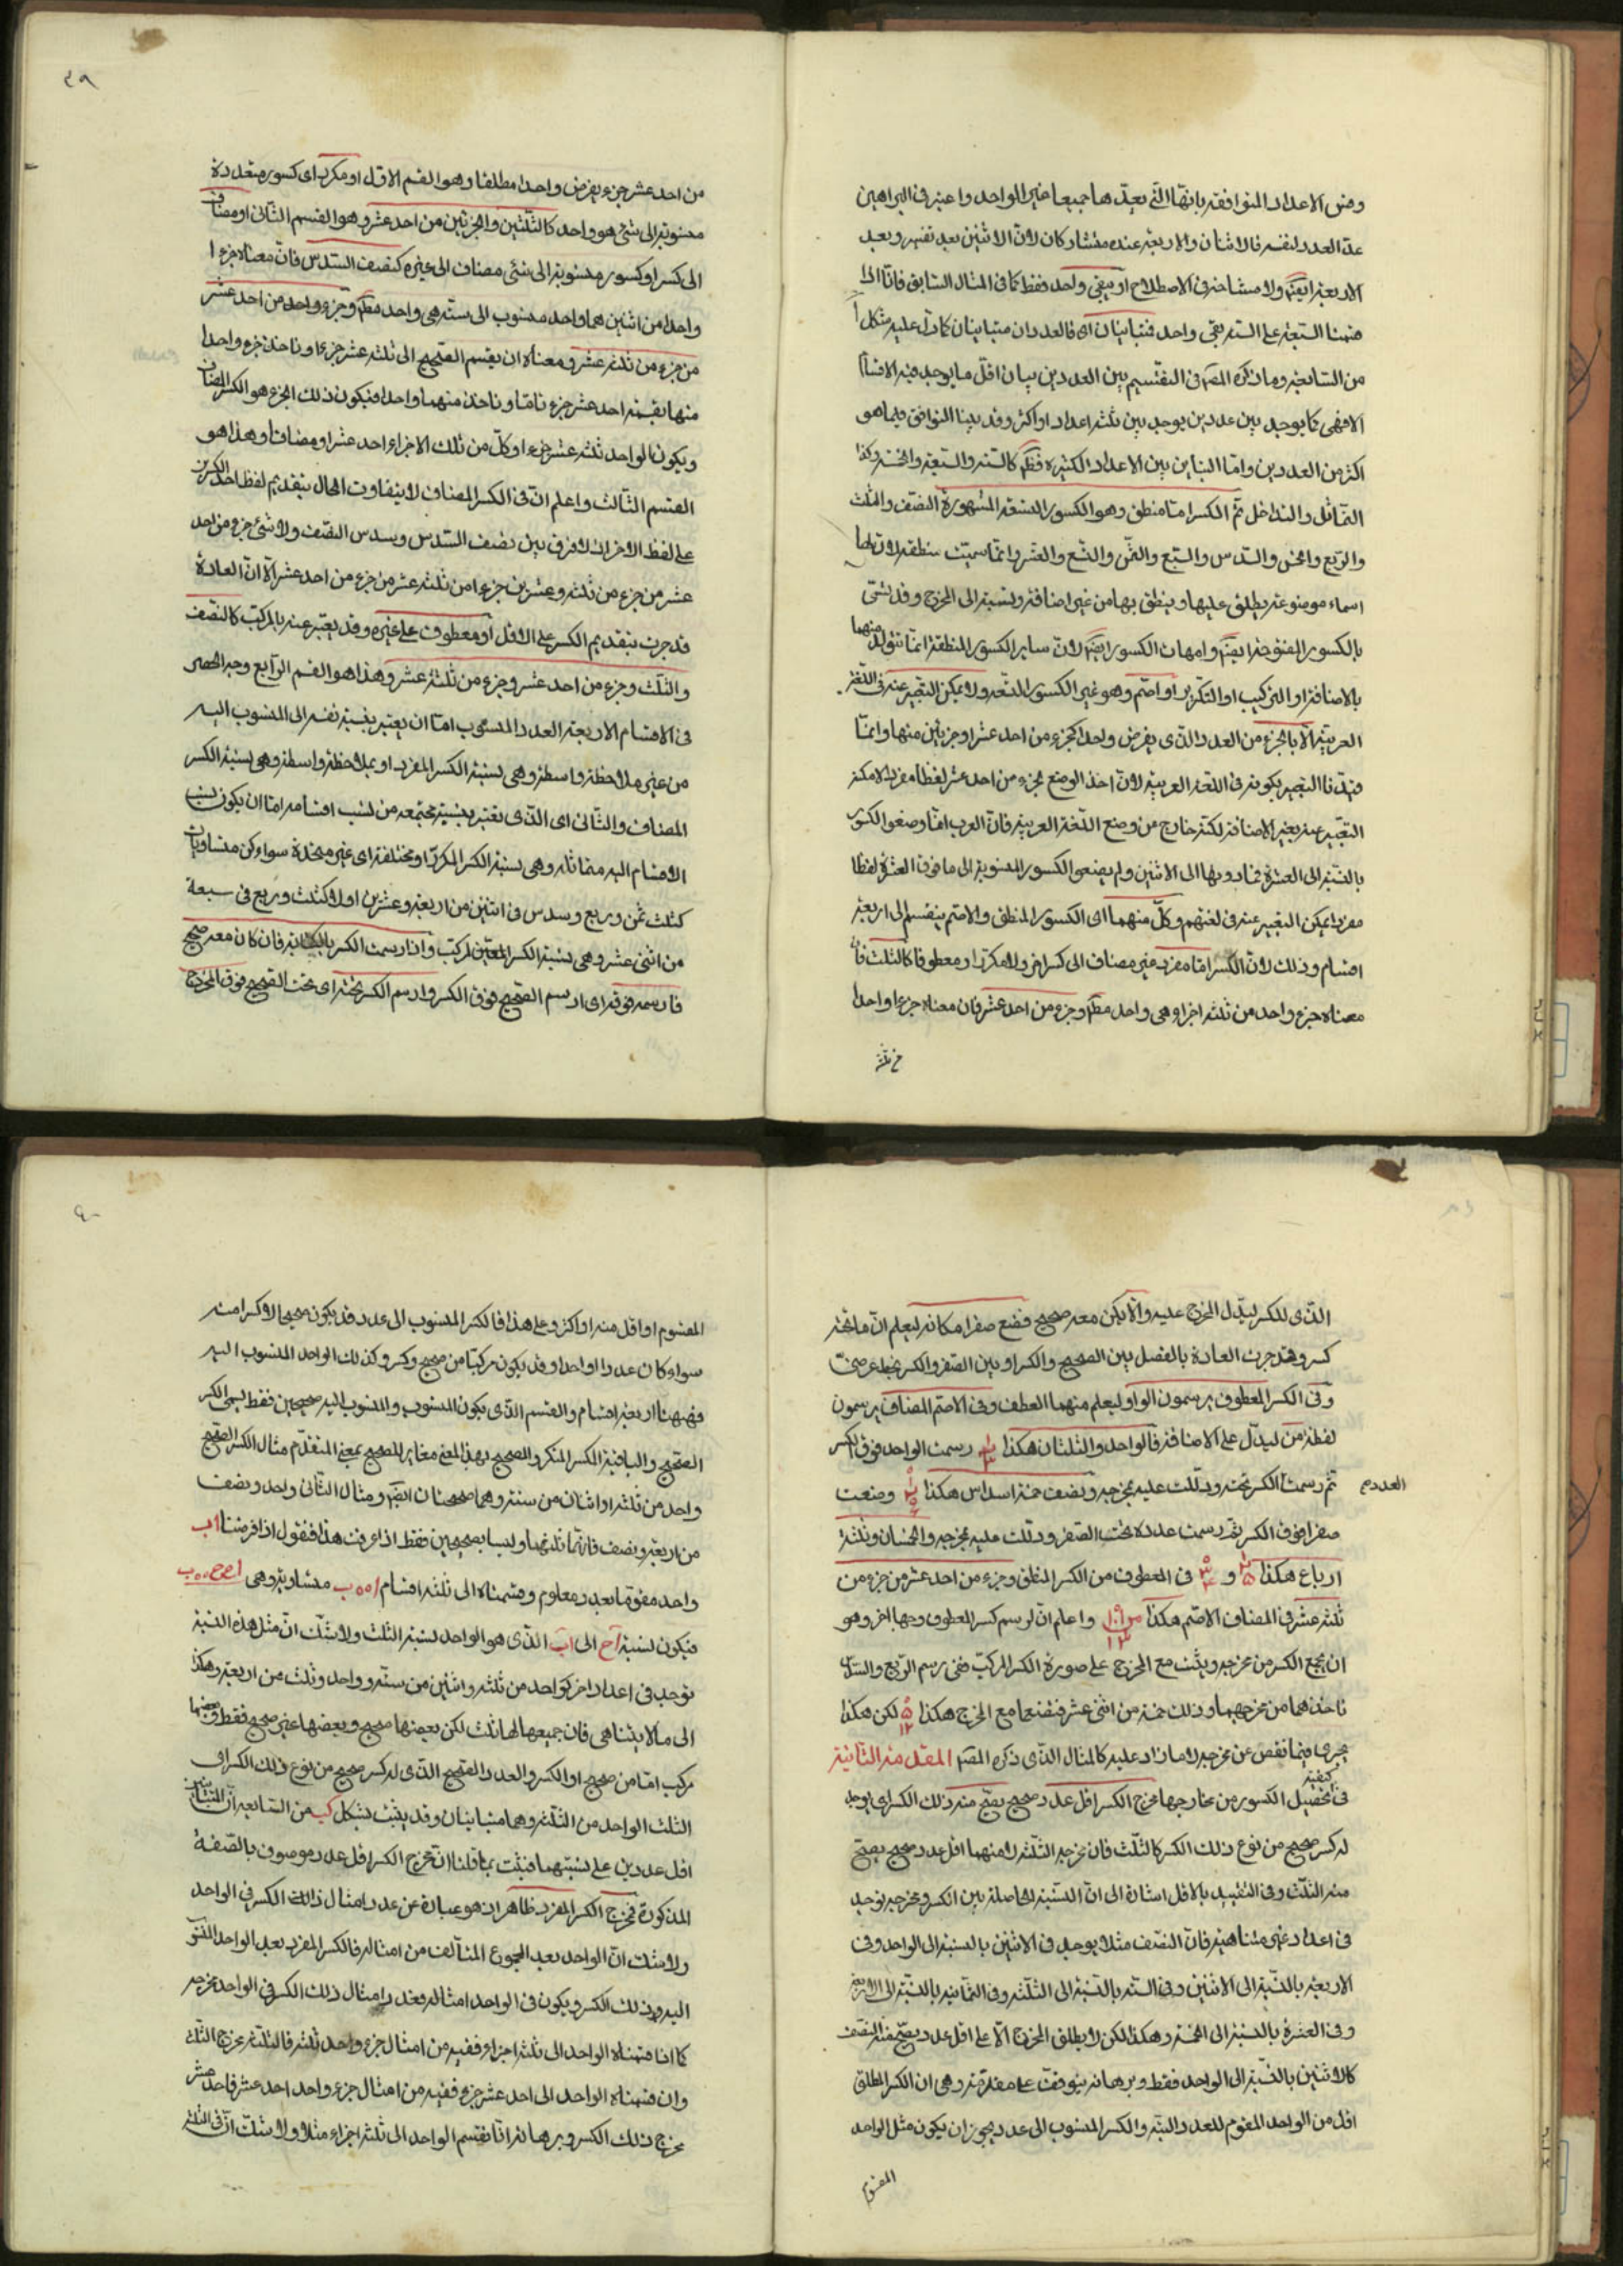 وفرض الاعداد المتوافقة بانها التي يعدها جميعا غير الواحد واعتبر في البراهين
عد العدد لنفسه فالاثنان والاربعة عنده متشاركان لان الاثنين يعد نفسه ويعد
الاربعة ايضا ولا مشاحة في الاصطلاح او يبقى واحد فقط كما في المثال السابق فانا اذا
قسمنا السبعة على الستة يبقى واحد فمتباينان اي فالعددان متباينان كما دل عليه شكل ا
من السابعة وما ذكره المصـ في التقسيم بين العددين بيان اقل ما يوجد فيه الاقسام
الا فهي كما يوجد بين عددين يوجد بين ثلثة اعداد او اكثر وقد بينا التوافق فيما هو
اكثر من العددين واما التباين بين الاعداد الكثيرة فكالستة والسبعة والخمسة وكذا
التماثل والتداخل ثم الكسر اما منطق وهو الكسور التسعة المشهورة النصف والثلث
والربع والخمس والسدس والسبع والثمن والتسع والعشر وانما سميت منطقة لان لها
اسماء موضوعة يطلق عليها وينطق بها من غير اضافة ونسبة الى المخرج وقد تسمى
بالكسور المفتوحة ايضا وامهات الكسور ايضا لان ساير الكسور المنطقة انما تتولد منها
بالاضافة او التركيب او التكرير او اصم وهو غير الكسور التسعة ولا يمكن التعبير عنه في اللغة
العربية الا بالجزء من العدد الذي يفرض واحدا كجزء من احد عشر او جزئين منها وانما
قيدنا التعبير بكونه في اللغة العربية لان اخذ الوضع لجزء من احد عشر لفظا مفردا لامكن
التعبير عنه بغير الاضافة لكنه خارج من وضع اللغة العربية فان العرب انما وضعوا الكسور
بالنسبة الى العشرة فما دونها الى الاثنين ولم يضعوا الكسور المنسوبة الى ما فوق العشرة لفظا
مفردا يمكن التعبير عنه في لغتهم وكل منهما اي الكسور المنطق والاصم ينقسم الى اربعة
اقسام وذلك لان الكسر اما مفرد غير مضاف الى كسر اخر ولا مكرر او معطوف كالثلث فان
معناه جزء واحد من ثلثة اجزاء هي واحد وجزء من احد عشر فان معناه جزء واحد
من احد عشر جزء يفرض واحدا مطلقا وهو القسم الاول او مكرر اي كسور متعددة
منسوبة الى شئ هو واحد كالثلثين والجزئين من احد عشر وهو القسم الثاني او مضاف
الى كسر او كسور منسوبة الى شئ مضاف الى غيره كنصف السدس فان معناه جزء ا
واحدا من اثنين هما واحد منسوب الى ستة هي واحد وجزء واحد من احد عشر
من جزء من ثلثة عشر ومعناه ان يقسم الصحيح الى ثلثة عشر جزءا وناخذ جزء واحدا
منها نقسمه احد عشر جزء تاما وناخذ منهما واحدا فيكون ذلك الجزء هو الكسر المضاف
ويكون الواحد ثلثة عشر جزء او كل من تلك الاجزاء احد عشر او مضافا وهذا هو
القسم الثالث واعلم ان في الكسر المضاف لا يتفاوت الحال بتقديم لفظ احد الكسرين
على لفظ الاخر اذ لا فرق بين نصف السدس وسدس النصف ولا شئ جزء من احد
عشر من جزء من ثلثة وعشرين جزءا من ثلثة عشر من جزء من احد عشر الا ان العادة
قد جرت بتقديم الكسر على الاقل او معطوف على غيره وقد يعبر عنه بالمركب كالنصف
والثلث وجزء من احد عشر وجزء من ثلثة عشر وهذا هو القسم الرابع وجه الحصر
في الاقسام الاربعة العدد المنسوب اما ان يعتبر بنسبة نفسه الى المنسوب اليه
من غير ملاحظة واسطة وهي نسبة الكسر المفرد او بملاحظة واسطة وهي نسبة الكسر
المضاف والثاني اي الذي تعتبر بنسبة مجتمعة من نسب اقسامه اما ان يكون نسب
الاقسام اليه متماثلة وهي نسبة الكسر المكرر او مختلفة اي غير متحدة سواء كن متساويات
كثلث ثمن وربع وسدس في اثنين من اربعة وعشرين اولا كثلث وربع في سبعة
من اثنى عشر وهي نسبة الكسر المعين لمركب واذا رسمت الكسر بالكتابة فان كان معه صحيح
فارسمه فوقه اي ارسم الصحيح فوق الكسر وارسم الكسر تحته اي تحت الصحيح فوق المخرج
الذي للكسر ليدل المخرج عليه والا يكن معه صحيح فضع صفرا مكانه ليعلم ان ما تحته
كسر وقد جرت العادة بالفصل بين الصحيح والكسر او بين الصفر والكسر بخط عرضي
وفي الكسر المعطوف يرسمون الواو ليعلم منهما العطف وفي الاصم المضاف يرسمون
لفظة من ليدل على الاضافة فالواحد والثلثان هكذا رسمت الواحد فوق الكسر
ثم رسمت الكسر تحته ودللت عليه بمخرجه ونصف خمسة اسداس هكذا وضعت
العدد
صفرا فوق الكسر ثم رسمت عدده تحت الصفر ودللت عليه بمخرجه والخمسان وثلثة
ارباع هكذا و في المعطوف من الكسر المنطق وجزء من احد عشر من جزء من
ثلثة عشر في المضاف الاصم هكذا واعلم ان لرسم كسر المعطوف وجها اخر وهو
ان يجمع الكسر من مخرجيه ويثبت مع المخرج على صورة الكسر المركب ففي رسم الربع والسدس
ناخذهما من مخرجهما وذلك خمسة من اثنى عشر فتضعها مع المخرج هكذا لكن هكذا
يجرى فيما نقص عن مخرجه لا ما زاد عليه كالمثال الذي ذكره المصـ المقدمة الثانية
في كيفية تحصيل الكسور من مخارجها مخرج الكسر اقل عدد صحيح يصح منه ذلك الكسر اي يوجد
له كسر صحيح من نوع ذلك الكسر كالثلث فان مخرجه الثلثة لانهما اقل عدد صحيح يصح
منه الثلث وفي التقييد بالاقل اشارة الى ان النسبة الحاصلة بين الكسر ومخرجه يوجد
في اعداد غير متناهية فان النصف مثلا يوجد في الاثنين بالنسبة الى الواحد وفي
الاربعة بالنسبة الى الاثنين وفي الستة بالنسبة الى الثلثة وفي الثمانية بالنسبة الى الاربعة
وفي العشرة بالنسبة الى الخمسة وهكذا لكن لا يطلق المخرج الا على اقل عدد يصح منه النصف
كالاثنين بالنسبة الى الواحد فقط وبرهانه يتوقف على مقدمة وهي ان الكسر المطلق
اقل من الواحد المقوم للعدد البتة والكسر المنسوب الى عدد يجوز ان يكون مثل الواحد
المقسوم
المقسوم او اقل منه او اكثر وعلى هذا فالكسر المنسوب الى عدد قد يكون صحيحا لا كسر منه
سواء كان عددا او احدا وقد يكون مركبا من صحيح وكسر وكذلك الواحد المنسوب اليه
فههنا اربعة اقسام والقسم الذي يكون المنسوب والمنسوب اليه صحيحين فقط يسمى الكسر
الصحيح والباقية الكسر المنكر والصحيح بهذا المعنى مغاير للصحيح بمعنى المتقدم مثال الكسر الصحيح
واحد من ثلثة او اثنان من ستة وهما صحيحان ايضا ومثال الثاني واحد ونصف
من اربعة ونصف فانه ثلثهما وليسا بصحيحين فقط اذا عرفت هذا فنقول اذا فرضنا اب
واحدا مقوما بعدد معلوم وقسمناه الى ثلثة اقسام متساوية وهي
فيكون نسبة اح الى اب الذي هو الواحد نسبة الثلث ولا شك ان مثل هذه النسبة
توجد في اعداد اخر كواحد من ثلثة واثنين من ستة وواحد وثلث من اربعة وهكذا
الى ما لا يتناهى فان جميعها لها ثلث لكن بعضها صحيح وبعضها غير صحيح فقط وبعضها
مركب اما من صحيح او الكسر والعدد الصحيح الذي له كسر صحيح من نوع ذلك الكسر اي
الثلث الواحد من الثلثة وهما متباينان وقد يثبت بشكل كب من السابعة ان المتباينين
اقل عددين على نسبتهما فيثبت بما قلنا ان مخرج الكسر اقل عدد موصوف بالصفة
المذكورة فمخرج الكسر المفرد ظاهر اذ هو عبارة عن عدد امثال ذلك الكسر في الواحد
ولا شك ان الواحد يعد المجموع المتالف من امثاله فالكسر المفرد يعد الواحد المنسوب
اليه وذلك الكسر ويكون في الواحد امثاله فعدد امثال ذلك الكسر في الواحد مخرجه
كما اذا قسمناه الواحد الى ثلثة اجزاء ففيه من امثال جزء واحد ثلثة فالثلثة مخرج الثلث
وان قسمناه الواحد الى احد عشر جزء ففيه من امثال جزء واحد احد عشر فاحد عشر
مخرج ذلك الكسر وبرهانه انا نقسم الواحد الى ثلثة اجزاء مثلا ولا شك ان في الثلثة